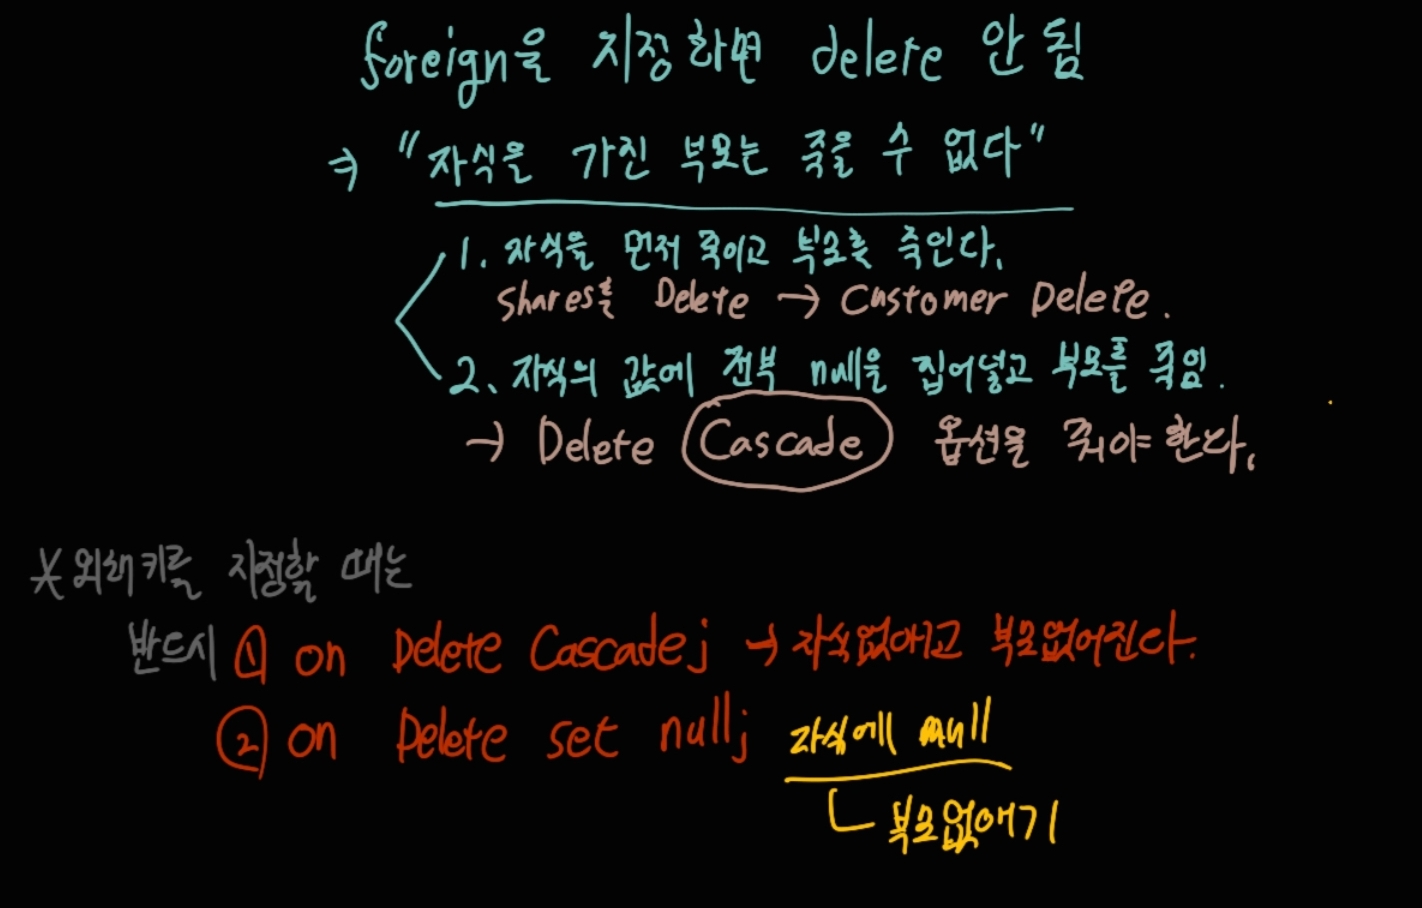 foreign을 지정하면 delete 안 됨
⇒ "자식을 가진 부모는 죽을 수 없다"
1. 자식을 먼저 죽이고 부모를 죽인다.
Shares를 Delete → Customer Delete.
2. 자식의 값에 전부 null을 집어넣고 부모를 죽임.
→ Delete Cascade 옵션을 줘야한다.
* 외래키를 지정할 때는
반드시 ① on Delete Cascade; → 자식없애고 부모없어진다.
② on Delete set null; 자식에 null
부모없애기